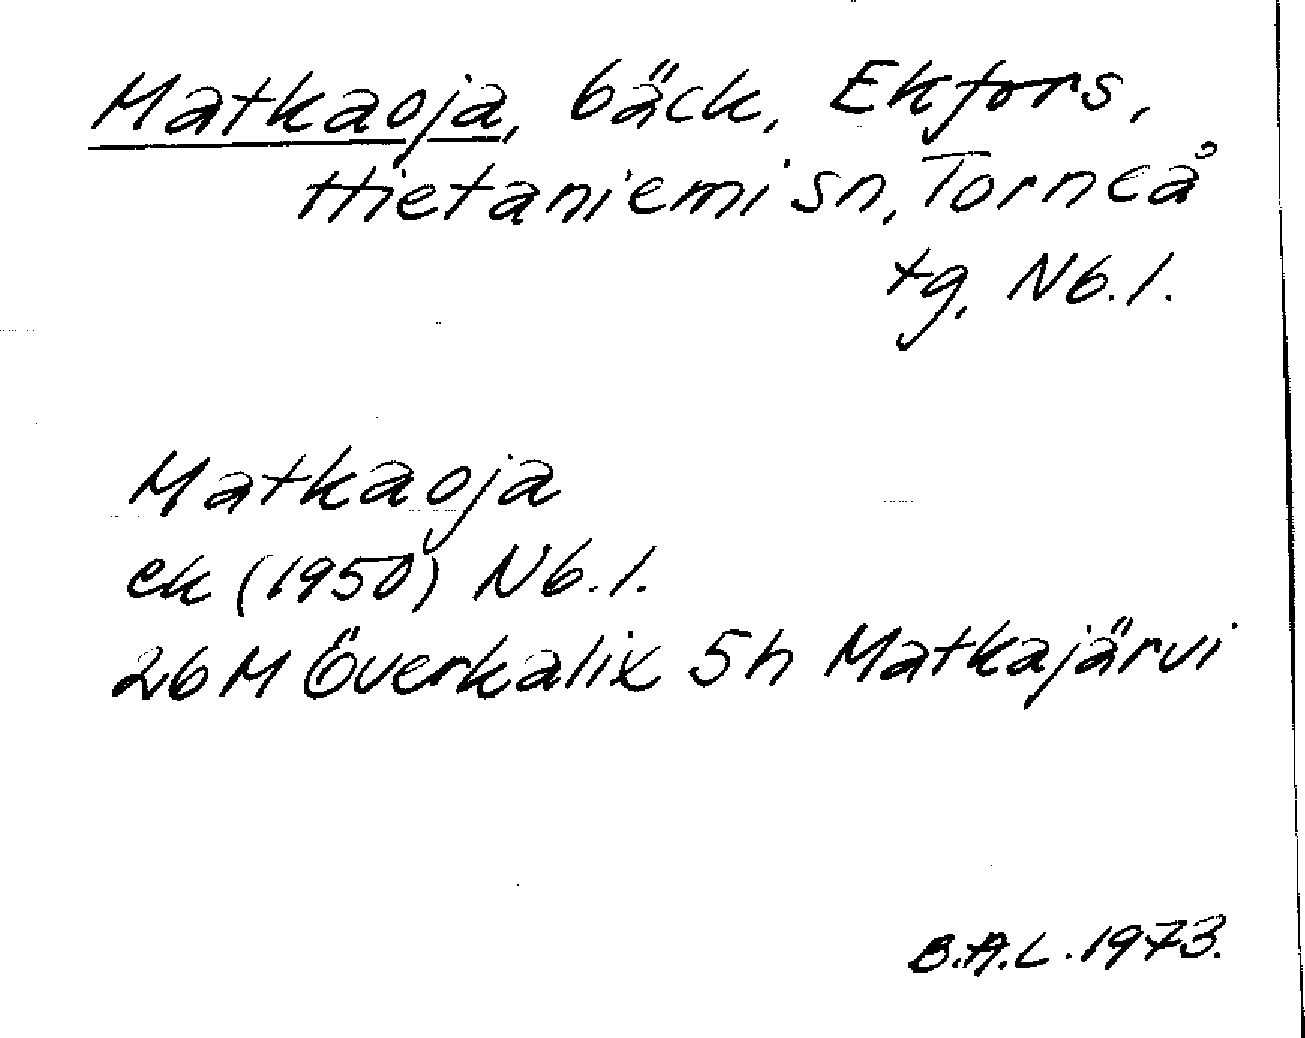 Matkaoja, bäck, Ekfors,
Hietaniemi sn, Torneå
tg, Nb.l.
Matkaoja
ek (1950) Nb.l.
26 M Överkalix 5h Matkajärvi
B.A.L. 1973.